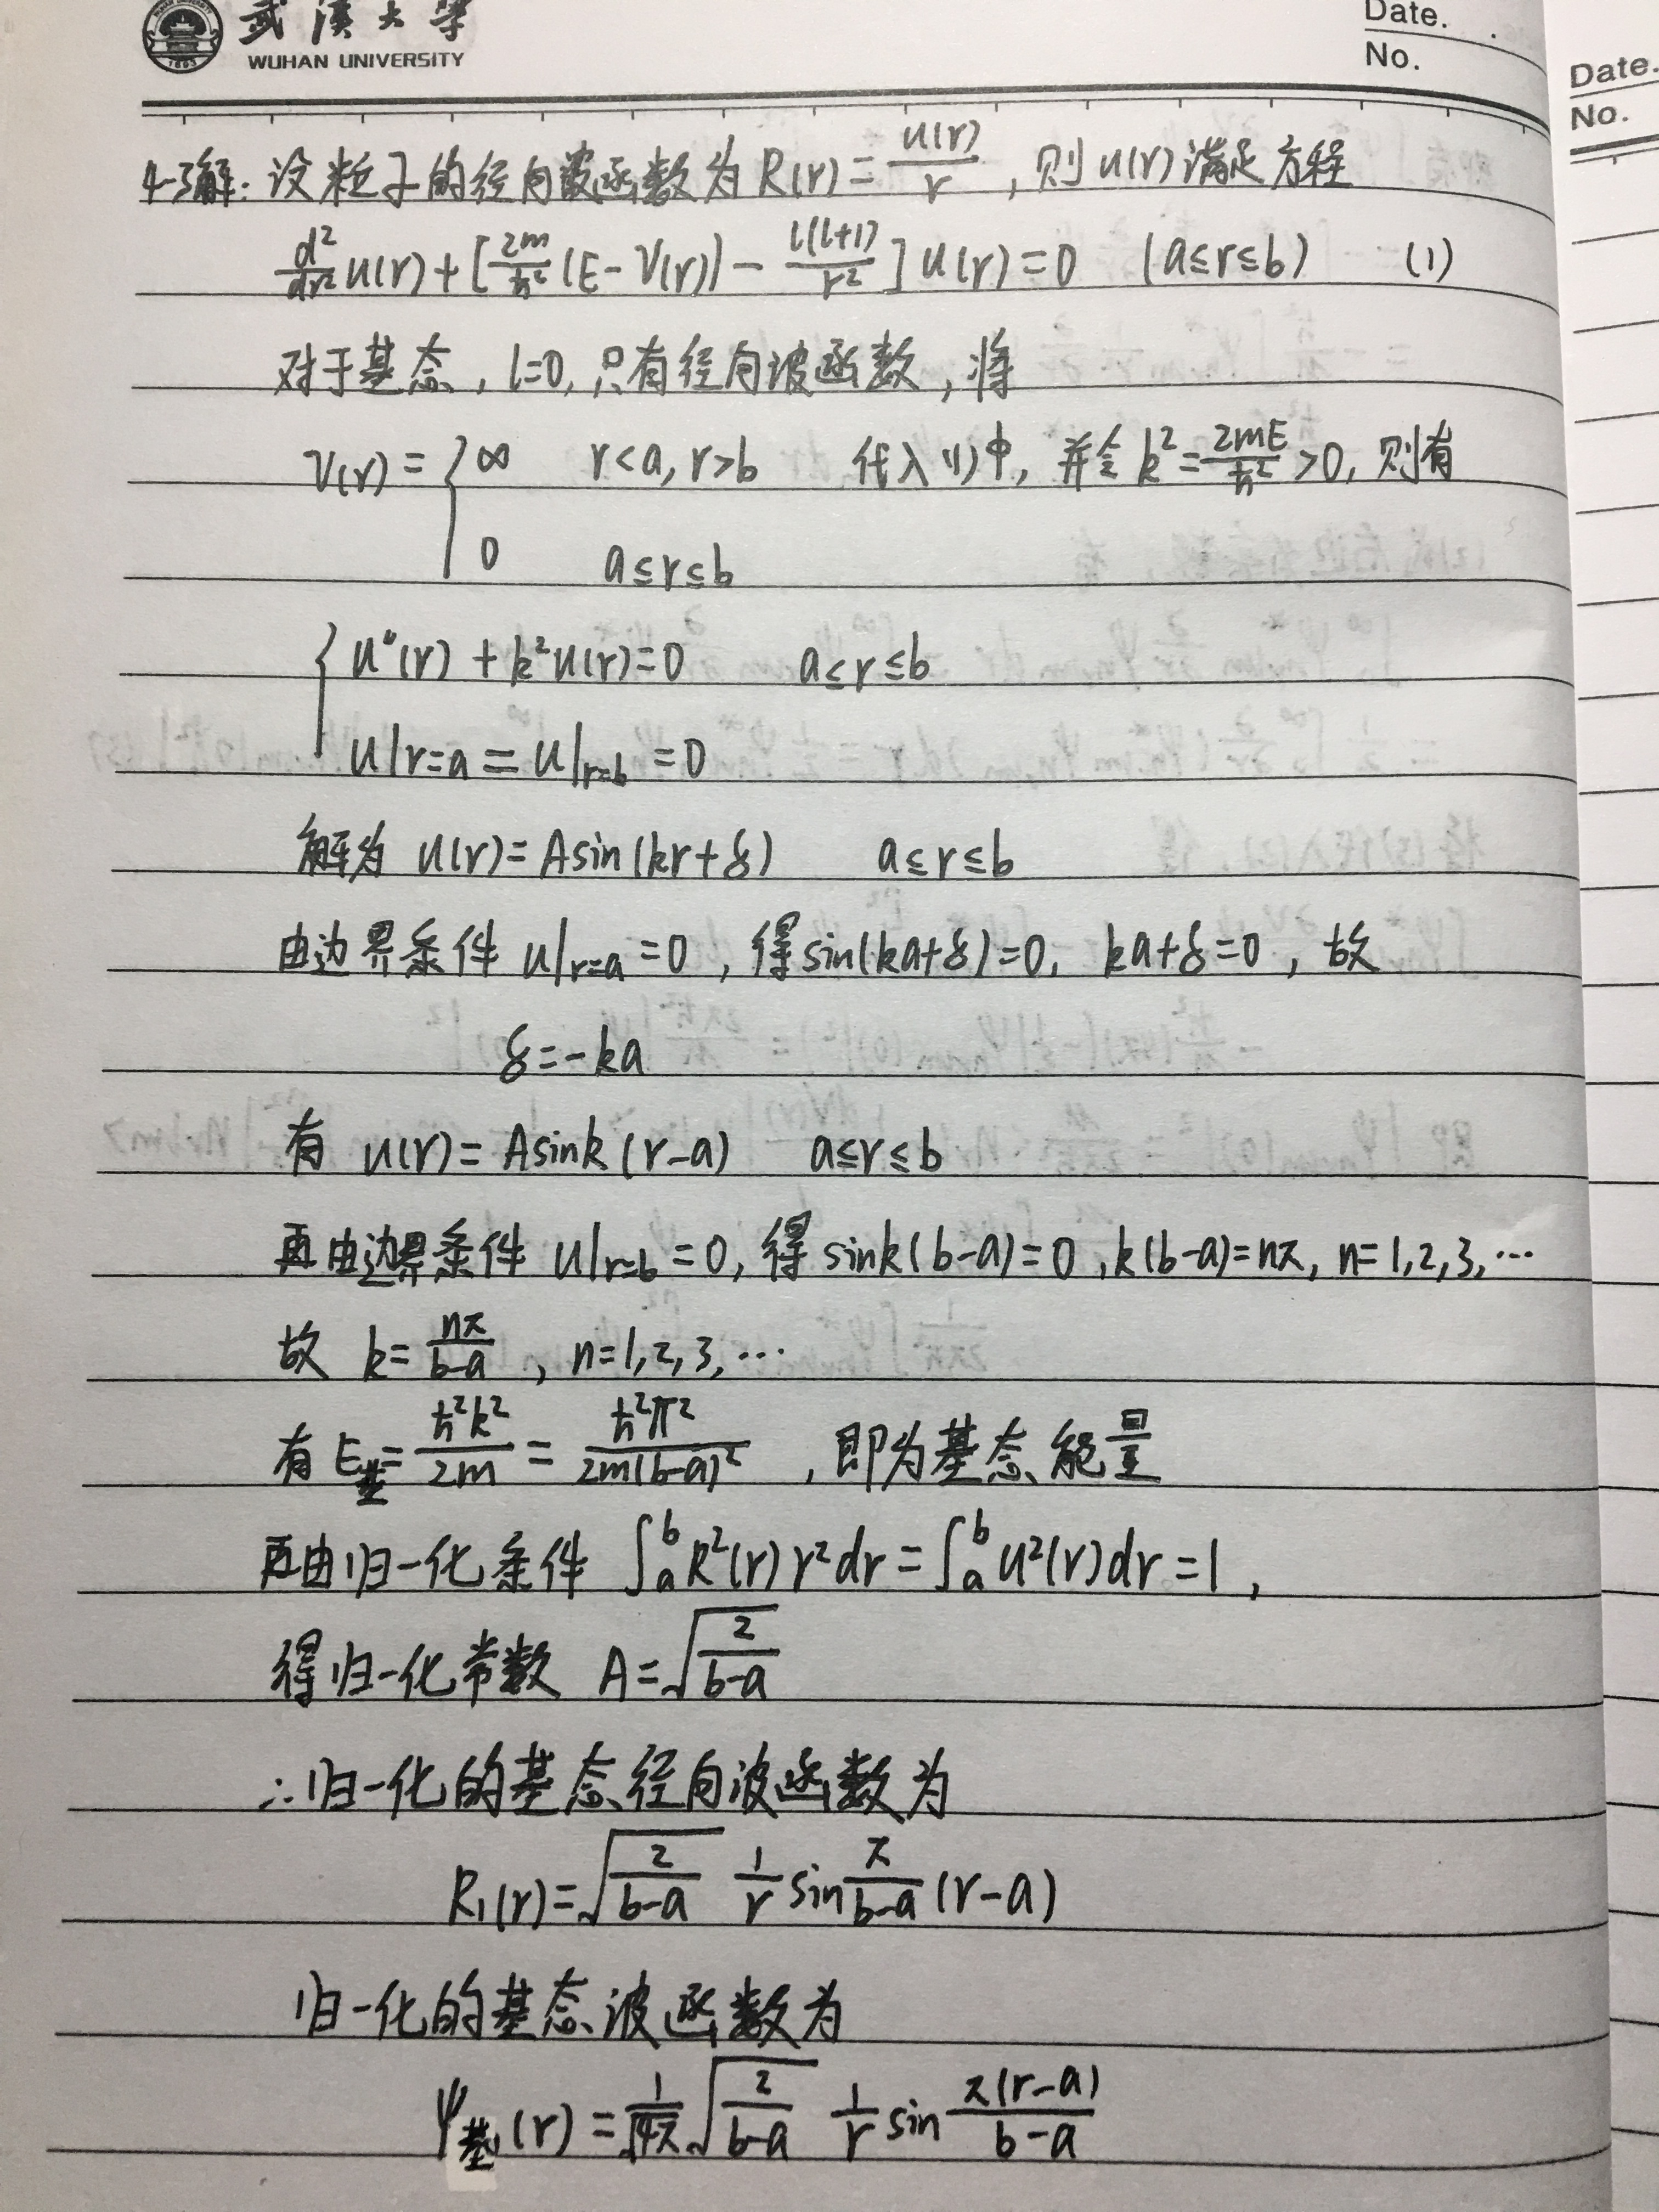 武漢大学
WUHAN UNIVERSITY
Date.
No.
Date.
No.
4-3解: 设粒子的径向波函数为 R(r) = u(r)/r , 则 u(r) 满足方程
d²/dr² u(r) + [2m/ħ² (E - V(r)) - l(l+1)/r²] u(r) = 0 (a≤r≤b) (1)
对于基态, l=0, 只有径向波函数, 将
V(r) = { ∞ r<a, r>b 代入(1)中, 并令 k² = 2mE/ħ² >0, 则有
0 a≤r≤b
{ u''(r) + k²u(r) = 0 a≤r≤b
u|r=a = u|r=b = 0
解为 u(r) = Asin(kr+δ) a≤r≤b
由边界条件 u|r=a = 0 , 得 sin(ka+δ)=0, ka+δ=0 , 故
δ = -ka
有 u(r) = Asink(r-a) a≤r≤b
再由边界条件 u|r=b = 0, 得 sink(b-a)=0 , k(b-a)=nπ, n=1,2,3,…
故 k = nπ/(b-a) , n=1,2,3,…
有 E基 = ħ²k²/2m = ħ²π²/2m(b-a)² , 即为基态能量
再由归一化条件 ∫ₐᵇ R²(r)r²dr = ∫ₐᵇ u²(r)dr = 1 ,
得归一化常数 A = √(2/(b-a))
∴归一化的基态径向波函数为
R₁(r) = √(2/(b-a)) 1/r sin π/(b-a) (r-a)
归一化的基态波函数为
ψ基(r) = 1/√4π √(2/(b-a)) 1/r sin π(r-a)/(b-a)